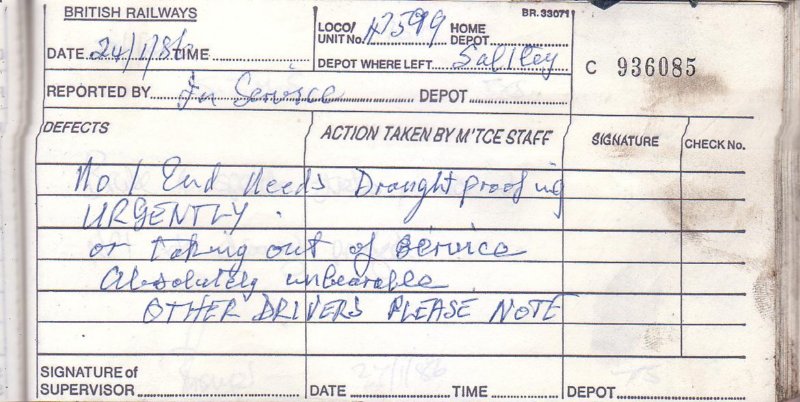 BRITISH RAILWAYS
BR. 33071
DATE 24/1/86 TIME
LOCO/ UNIT No. 47599 HOME DEPOT
DEPOT WHERE LEFT Saltley
C 936085
REPORTED BY In Service DEPOT
DEFECTS ACTION TAKEN BY M'TCE STAFF SIGNATURE CHECK No.
No 1 End Needs Draughtproofing
URGENTLY.
or taking out of service
Absolutely unbearable
OTHER DRIVERS PLEASE NOTE
SIGNATURE of
SUPERVISOR DATE TIME DEPOT